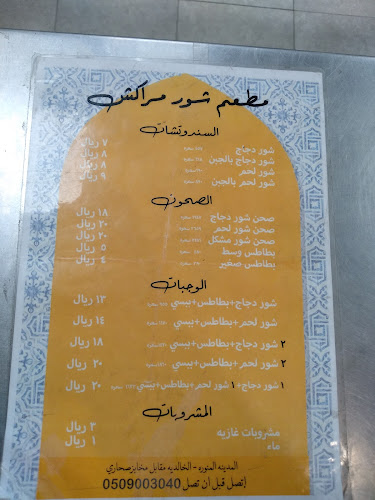 مطعم شور مراكش
السندوتشات
شور دجاج ٧ ريال
شور دجاج بالجبن ٨ ريال
شور لحم ٨ ريال
شور لحم بالجبن ٩ ريال
الصحون
صحن شور دجاج ١٨ ريال
صحن شور لحم ٢٠ ريال
صحن شور مشكل ٢٠ ريال
بطاطس وسط ٥ ريال
بطاطس صغير ٤ ريال
الوجبات
شور دجاج+بطاطس+بيبسي ١٣ ريال
شور لحم+بطاطس+بيبسي ١٤ ريال
٢ شور دجاج+بطاطس+بيبسي ١٨ ريال
٢ شور لحم+بطاطس+بيبسي ٢٠ ريال
١ شور دجاج+١ شور لحم+بطاطس+بيبسي ٢٠ ريال
المشروبات
مشروبات غازيه ٣ ريال
ماء ١ ريال
المدينه المنوره - الخالديه مقابل مخابز صحاري
إتصل قبل ان تصل 0509003040